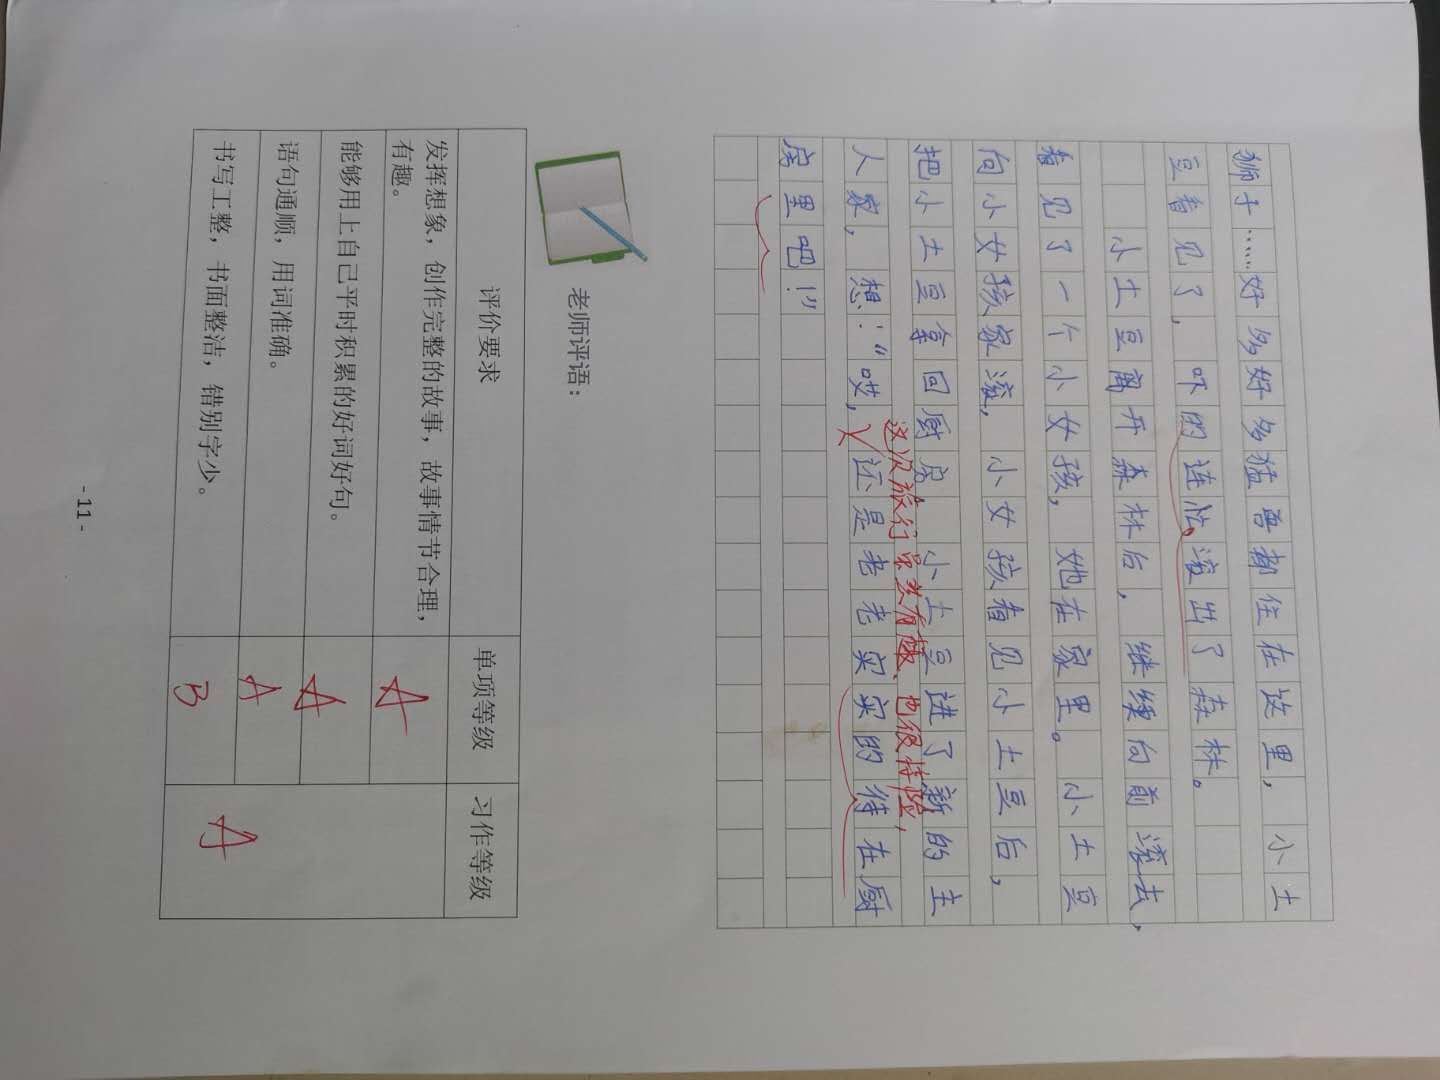 狮子……好多好多猛兽都住在这里，小土
豆看见了，吓的连忙滚出了森林。
小土豆离开森林后，继续向前滚去，
看见了一个小女孩，她在家里。小土豆
向小女孩家滚，小女孩看见小土豆后，
把小土豆拿回厨房，小土豆进了新的主
这次旅行虽然有趣、也很惊险，
人家，想：“哎，还是老老实实的待在厨
房里吧！”
老师评语：
评价要求
单项等级
习作等级
发挥想象，创作完整的故事，故事情节合理，
有趣。
A
能够用上自己平时积累的好词好句。
A
语句通顺，用词准确。
A
书写工整，书面整洁，错别字少。
B
A
- 11 -